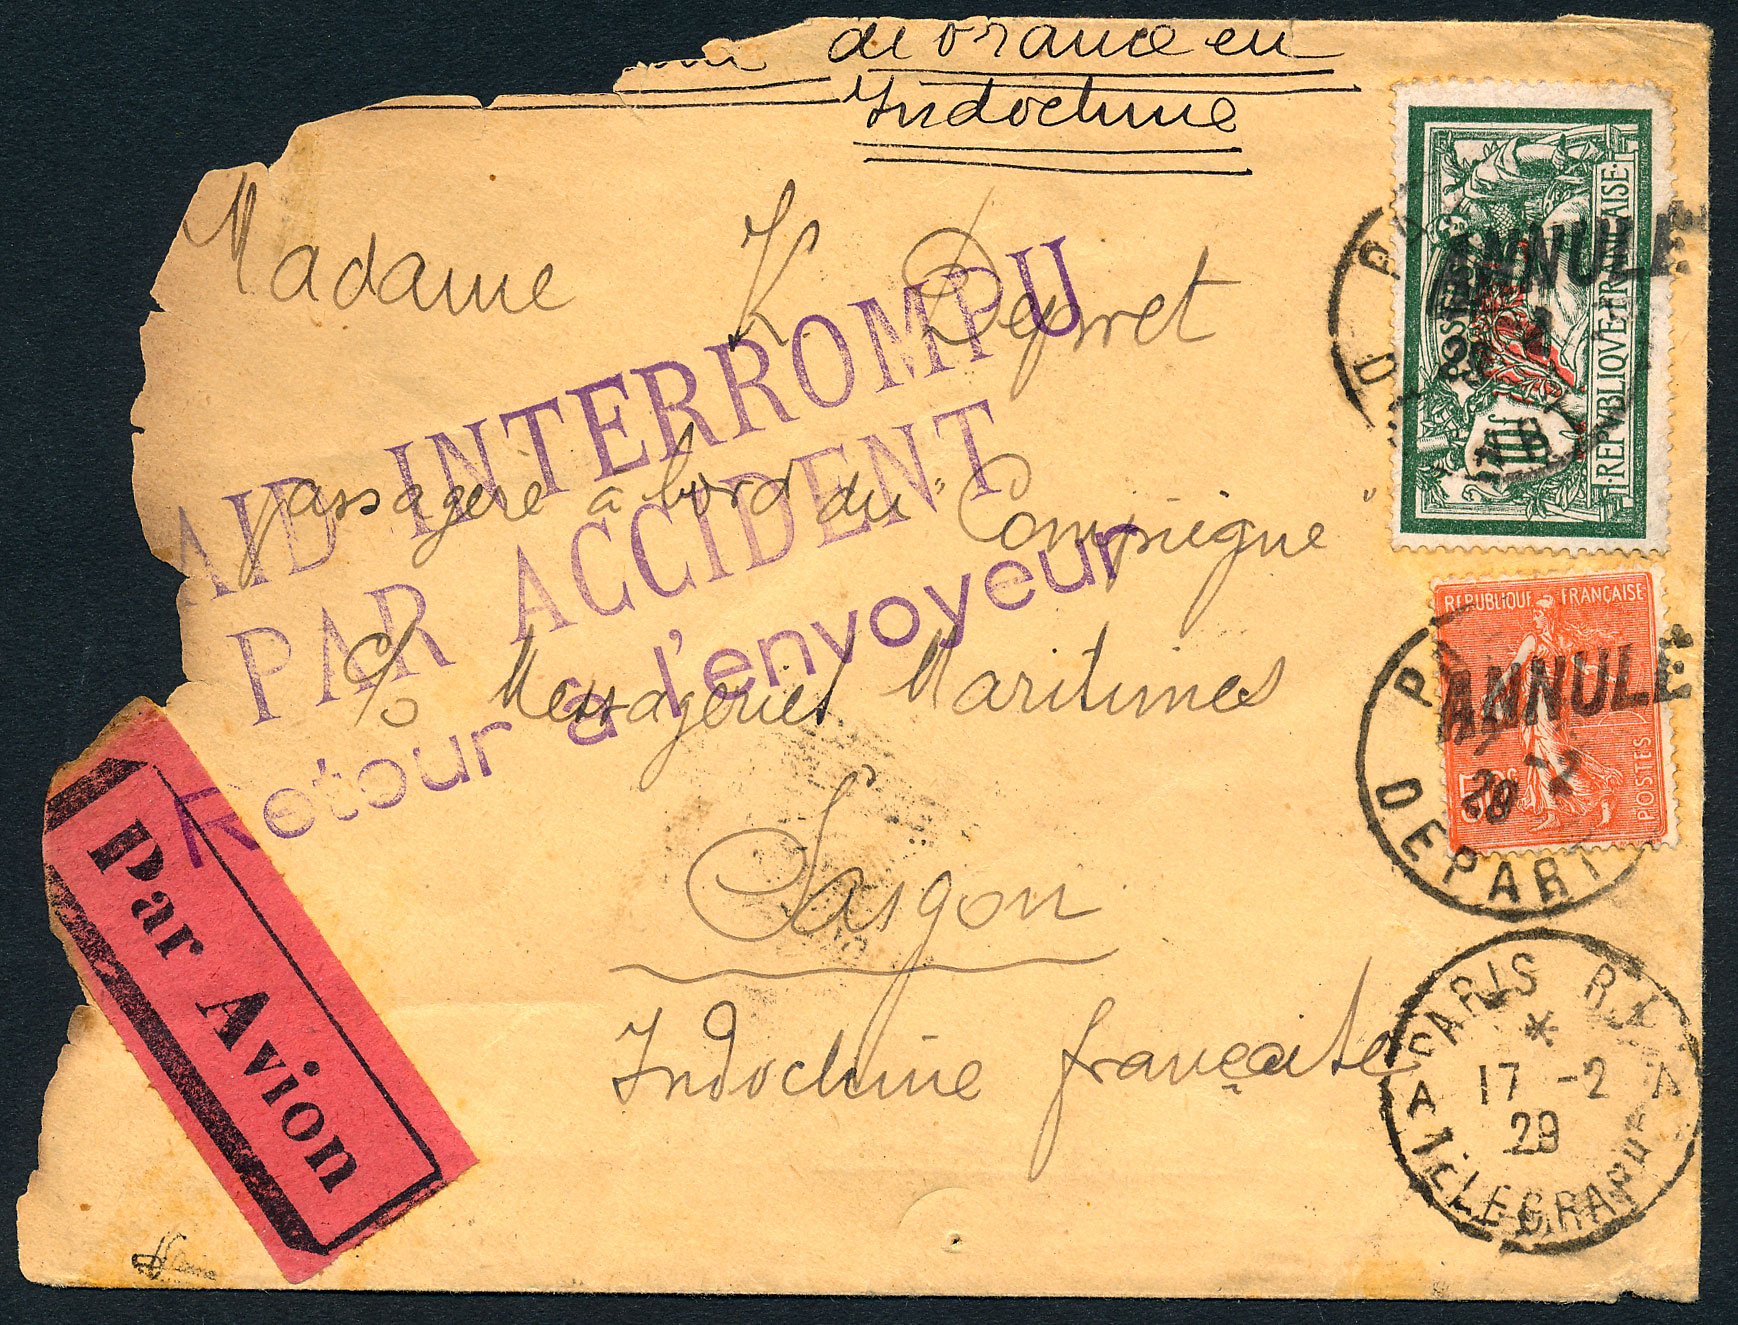 de France en
Indochine
Madame K Depret
Passagère à bord du "Compiègne"
c/o Messageries Maritimes
Saïgon
Indochine française
AID INTERROMPU
PAR ACCIDENT
Retour à l'envoyeur
Par Avion
POSTES
REPVBLIQVE FRANÇAISE
10F
ANNULE
REPUBLIQUE FRANÇAISE
POSTES
ANNULE
-2
29
DEPART
PARIS R.P.
17 -2
29
TELEGRAPHE